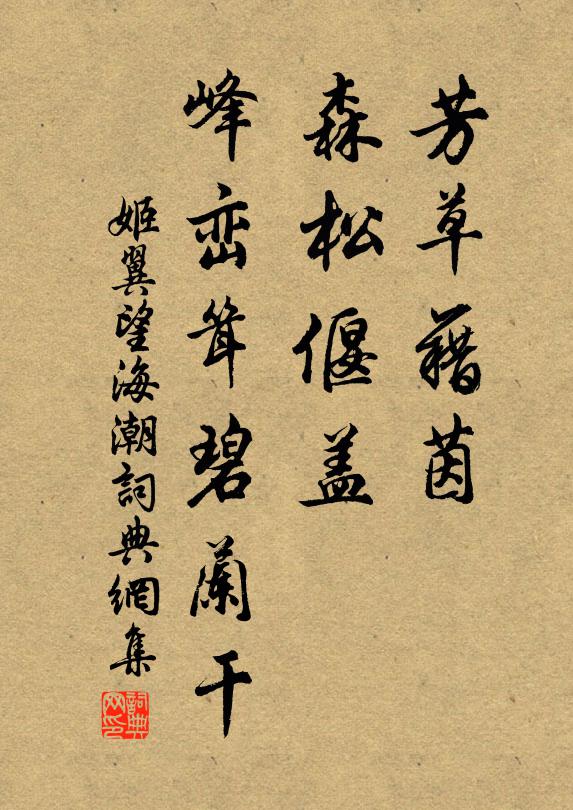 芳草藉茵
森松偃盖
峰峦耸碧阑干
姬翼望海潮詞典網集
詞典网印